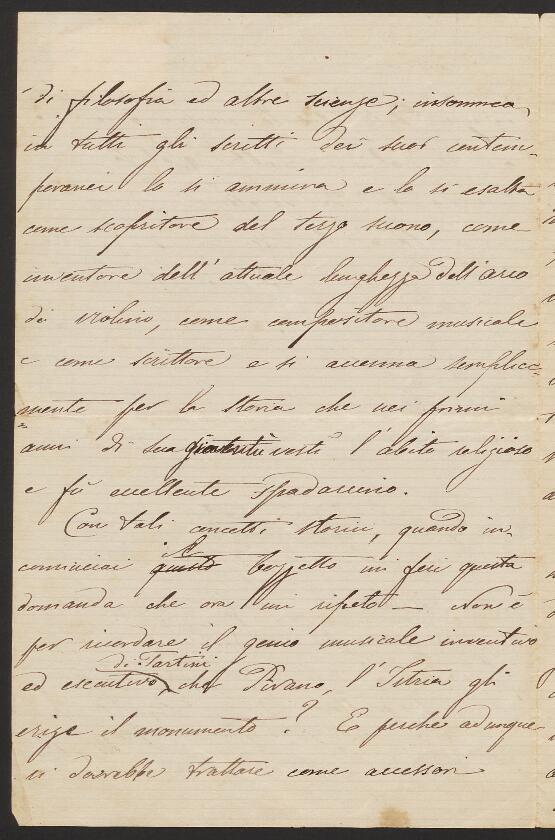 di filosofia ed altre scienze; insomma,
in tutti gli scritti dei suoi contem-
poranei lo si ammira e lo si esalta
come scopritore del terzo suono, come
inventore dell' attuale lunghezza dell' arco
di violino, come compositore musicale
e come scrittore e si accenna semplice-
mente per la storia che nei primi
anni di sua gioventù vestì l' abito religioso
e fù eccellente spadaccino.
Con tali concetti storici, quando in-
il
cominciai questo bozzetto mi feci questa
domanda che ora mi ripeto — Non è
per ricordare il genio musicale inventivo
di Tartini
ed esecutivo, che Pirano, l' Istria gli
erige il monumento? E perchè adunque
si dovrebbe trattare come accessori